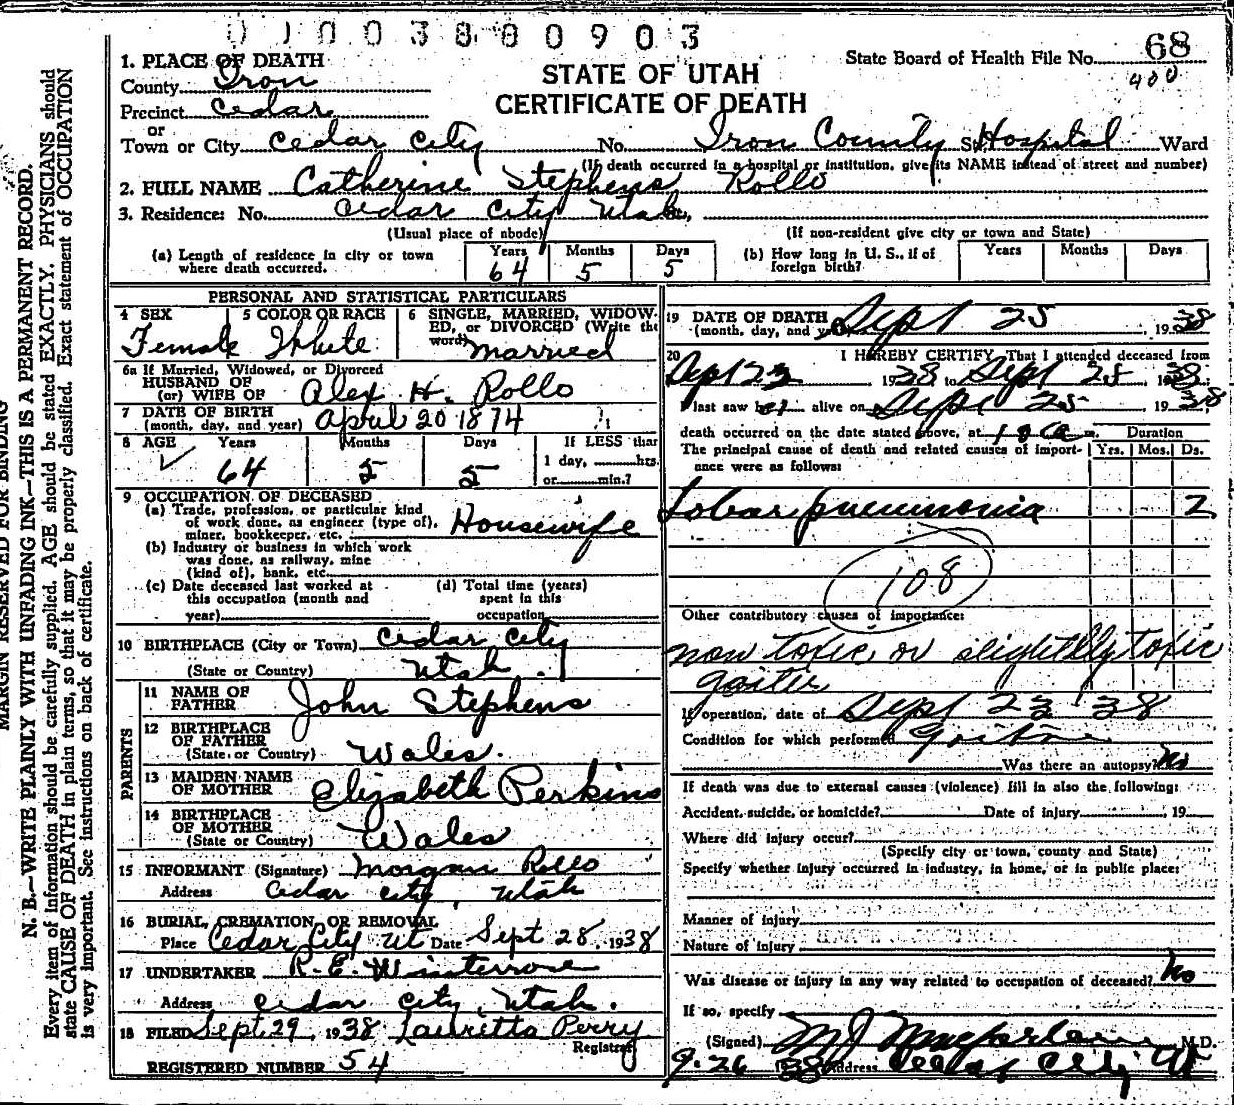 01003800903
State Board of Health File No. 68
400
1. PLACE OF DEATH
County Iron
STATE OF UTAH
Precinct Cedar
CERTIFICATE OF DEATH
or
Town or City Cedar City No. Iron County St. Hospital Ward
(If death occurred in a hospital or institution, give its NAME instead of street and number)
2. FULL NAME Catherine Stephens Rollo
3. Residence: No. Cedar City Utah St.,
(Usual place of abode) (If non-resident give city or town and State)
(a) Length of residence in city or town where death occurred. Years 64 Months 5 Days 5
(b) How long in U. S., if of foreign birth? Years Months Days
PERSONAL AND STATISTICAL PARTICULARS
4 SEX Female
5 COLOR OR RACE White
6 SINGLE, MARRIED, WIDOWED, or DIVORCED (Write the word) married
6a If Married, Widowed, or Divorced
HUSBAND OF
(or) WIFE OF Alex H. Rollo
7 DATE OF BIRTH
(month, day, and year) April 20 1874
8 AGE Years 64 Months 5 Days 5
If LESS than
1 day, hrs.
or min.?
9 OCCUPATION OF DECEASED
(a) Trade, profession, or particular kind
of work done, as engineer (type of),
miner, bookkeeper, etc. Housewife
(b) Industry or business in which work
was done, as railway, mine
(kind of), bank, etc.
(c) Date deceased last worked at
this occupation (month and
year)
(d) Total time (years)
spent in this
occupation
10 BIRTHPLACE (City or Town) Cedar City
(State or Country) Utah.
PARENTS
11 NAME OF
FATHER John Stephens
12 BIRTHPLACE
OF FATHER
(State or Country) Wales.
13 MAIDEN NAME
OF MOTHER Elizabeth Perkins
14 BIRTHPLACE
OF MOTHER
(State or Country) Wales
15 INFORMANT (Signature) Morgan Rollo
Address Cedar City, Utah
16 BURIAL, CREMATION, OR REMOVAL
Place Cedar City Ut Date Sept 28, 1938
17 UNDERTAKER R. E. Winterrose
Address Cedar City, Utah.
18 FILED Sept. 29, 1938 Lauretta Perry
Registrar
REGISTERED NUMBER 54
19 DATE OF DEATH
(month, day, and year) Sept 25, 1938
20 I HEREBY CERTIFY, That I attended deceased from
Sept 23 1938 to Sept 25, 1938
I last saw her alive on Sept 25 1938
death occurred on the date stated above, at m. Duration
The principal cause of death and related causes of importance were as follows: Yrs. Mos. Ds.
Lobar pneumonia 2
108
Other contributory causes of importance:
non toxic or slightly toxic
goiter
If operation, date of Sept 23 '38
Condition for which performed Goitre
Was there an autopsy? No
If death was due to external causes (violence) fill in also the following:
Accident, suicide, or homicide? Date of injury , 19
Where did injury occur?
(Specify city or town, county and State)
Specify whether injury occurred in industry, in home, or in public place:
Manner of injury
Nature of injury
Was disease or injury in any way related to occupation of deceased? No
If so, specify
(Signed) M J Macfarlane M.D.
9-26 1938 Address Cedar City Ut
MARGIN RESERVED FOR BINDING
N. B.—WRITE PLAINLY WITH UNFADING INK—THIS IS A PERMANENT RECORD.
Every item of information should be carefully supplied. AGE should be stated EXACTLY. PHYSICIANS should
state CAUSE OF DEATH in plain terms, so that it may be properly classified. Exact statement of OCCUPATION
is very important. See instructions on back of certificate.